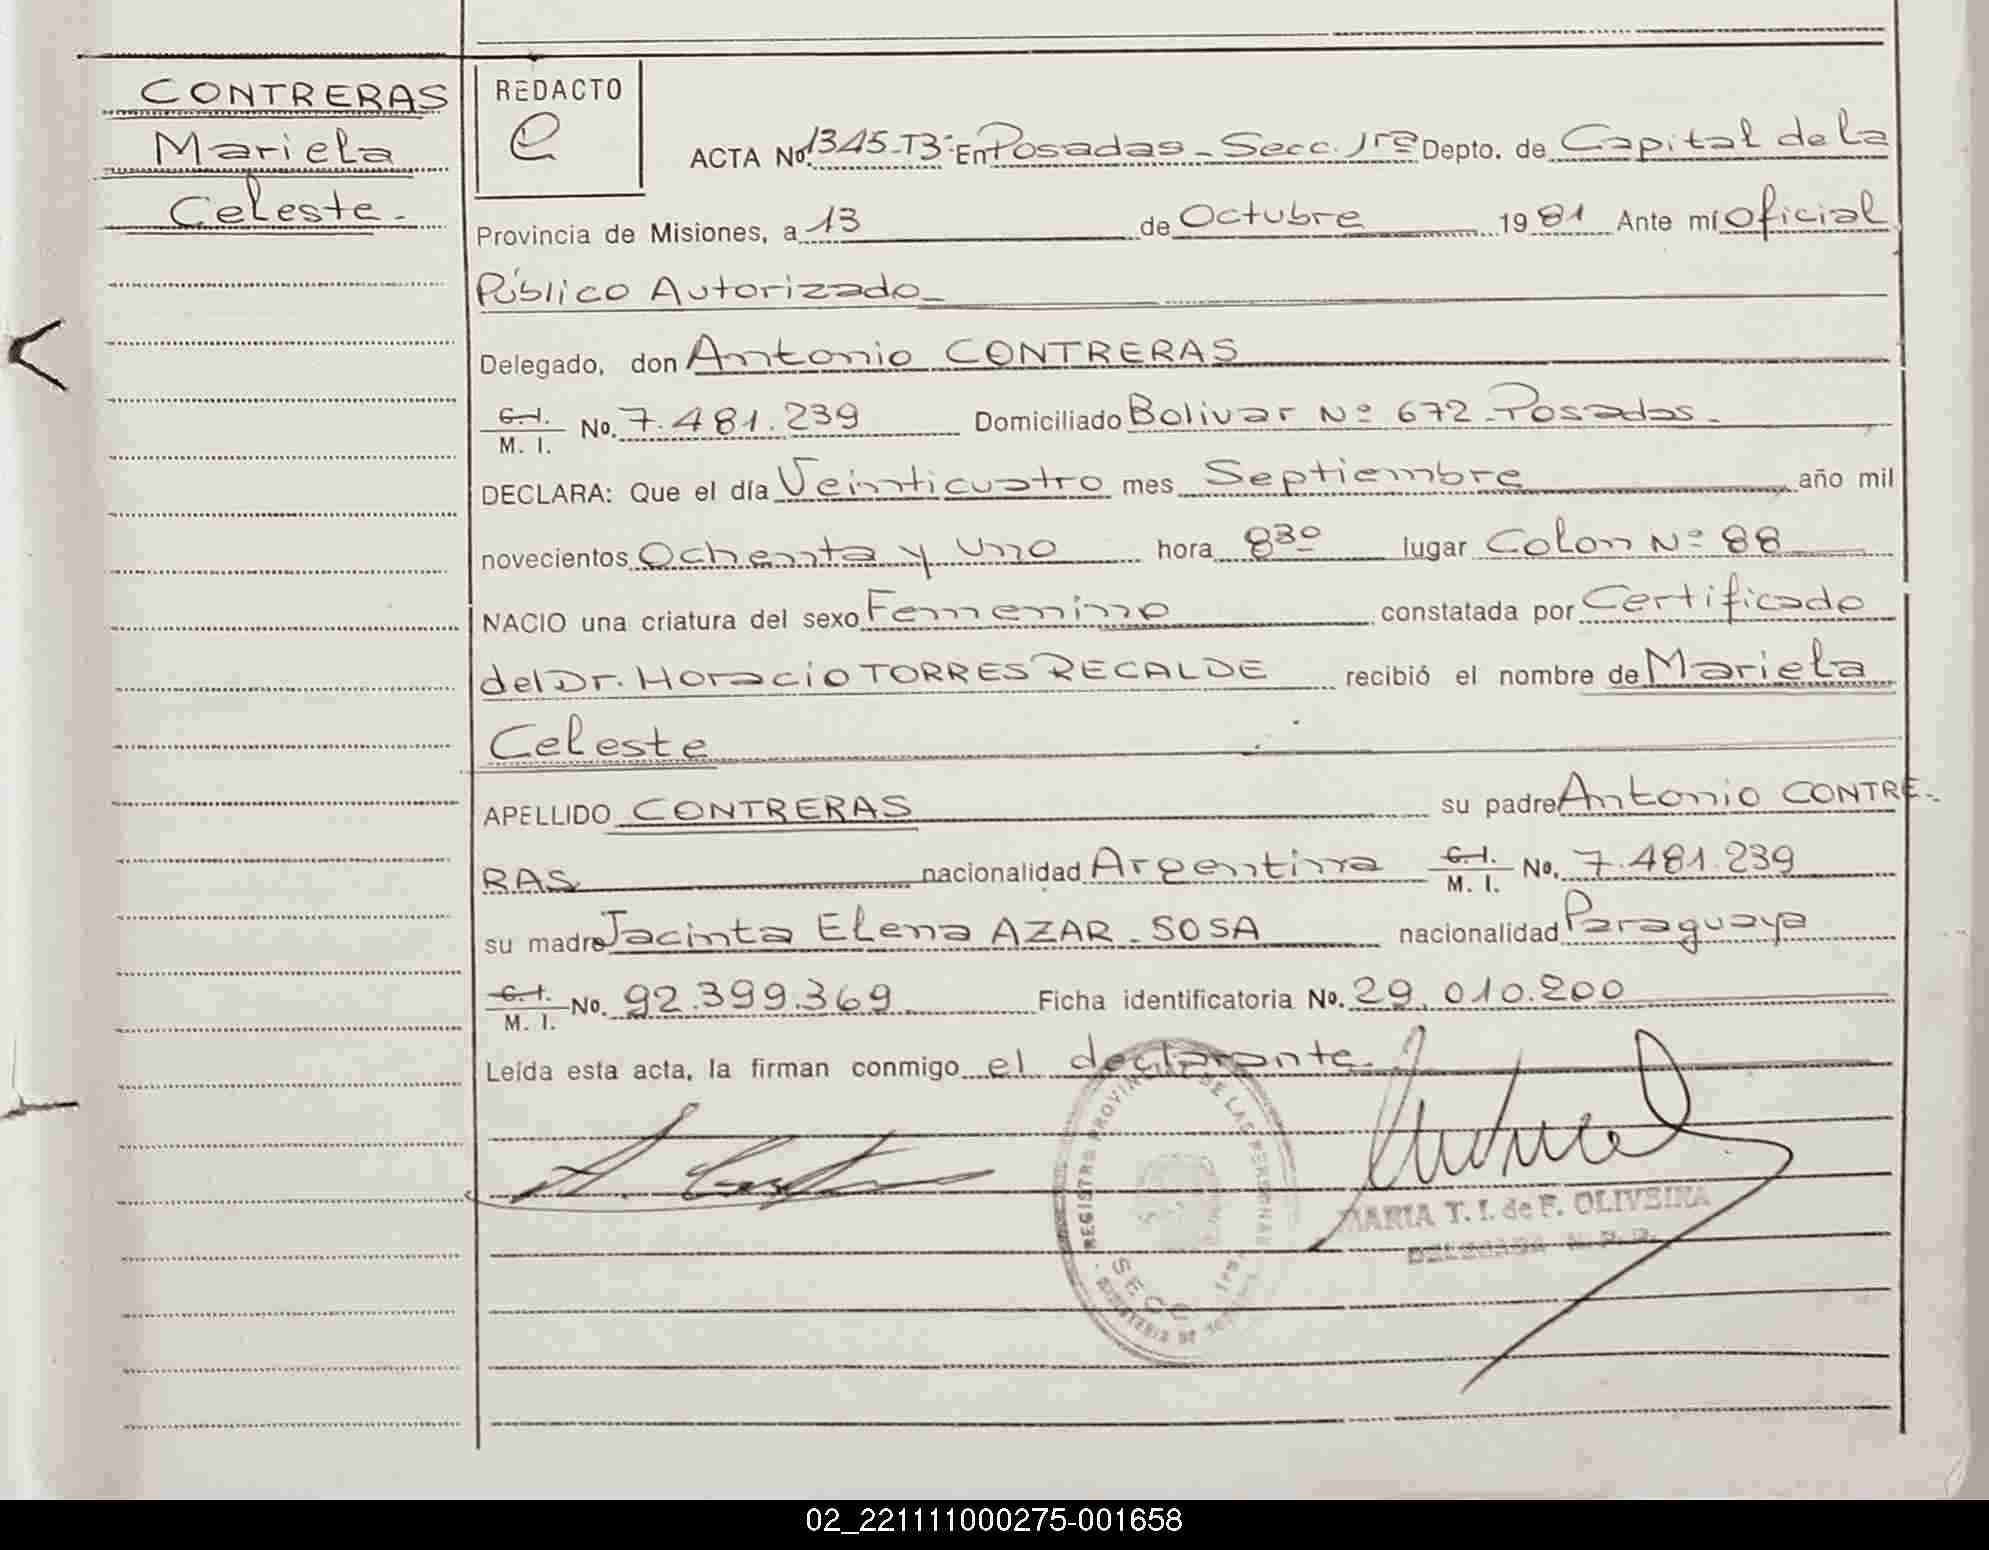 CONTRERAS
Mariela
Celeste.-
REDACTO
e
ACTA No. 1345-T3- En Posadas - Secc. 1ra Depto. de Capital de la
Provincia de Misiones, a 13 de Octubre 1981 Ante mí Oficial
Público Autorizado -
Delegado, don Antonio CONTRERAS
C. I. M. I. No. 7.481.239 Domiciliado Bolivar Nº 672 - Posadas -
DECLARA: Que el día Veinticuatro mes Septiembre año mil
novecientos Ochenta y Uno hora 8 30 lugar Colon Nº 88
NACIO una criatura del sexo Femenino constatada por Certificado
del Dr. Horacio TORRES RECALDE recibió el nombre de Mariela
Celeste
APELLIDO CONTRERAS su padre Antonio CONTRE-
RAS nacionalidad Argentina C. I. M. I. No. 7.481.239
su madre Jacinta Elena AZAR - SOSA nacionalidad Paraguaya
C. I. M. I. No. 92.399.369 Ficha identificatoria No. 29.010.200
Leída esta acta, la firman conmigo el declarante.
REGISTRO PROVINCIAL DE LAS PERSONAS
SECC. 1ra
MARIA T. I. de F. OLIVEIRA
02_221111000275-001658